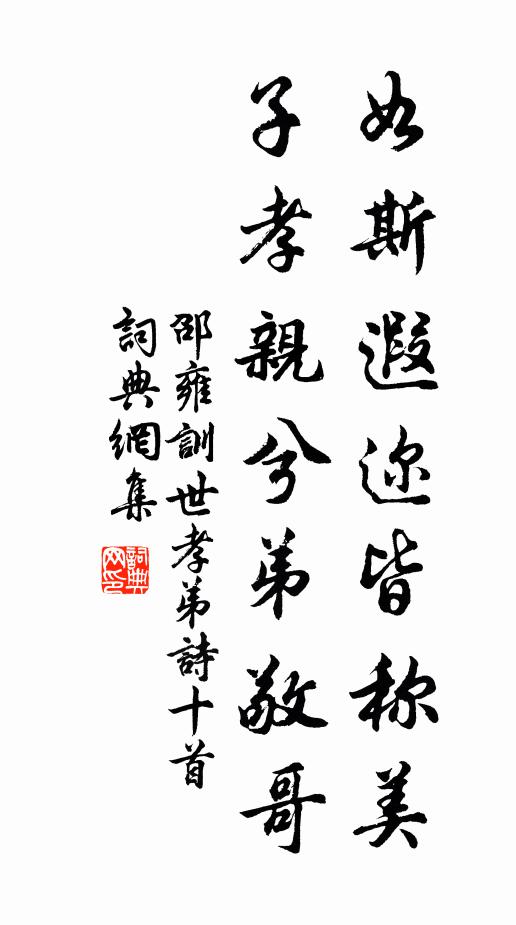 如斯遐迩皆称美
子孝親兮弟敬哥
邵雍訓世孝弟詩十首
詞典網集
詞典网印